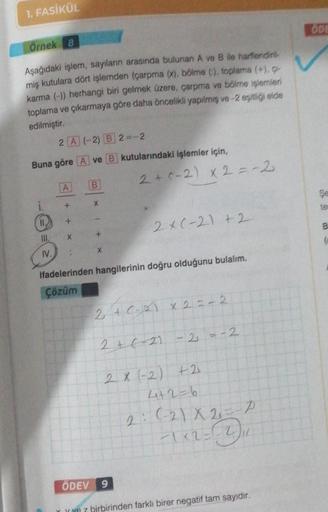 1. FASİKÜL
ÖDE
Örnek 8
Aşağıdaki işlem, sayıların arasında bulunan A ve B ile harflendiril-
miş kutulara dört işlemden (çarpma (x), bölme (:), toplama (+), çı-
karma (-)) herhangi biri gelmek üzere, çarpma ve bölme işlemleri
toplama ve çıkarmaya göre daha öncelikli yapılmış ve -2 eşitliği elde
edilmiştir.
2 A (-2) B 2 = -2
Buna göre A ve B kutularındaki işlemler için,
2 + (-2) x 2 = -2
A B
I. + x
II. + -
2 x (-2) + 2
III. x +
IV. : x
ifadelerinden hangilerinin doğru olduğunu bulalım.
Çözüm
2 + (-2) x 2 = -2
2 + (-2) - 2 = -2
2 x (-2) + 2
4+2=6
2 : (-2) x 2 =
-1 x 2 = -2
ÖDEV 9
z birbirinden farklı birer negatif tam sayıdır.